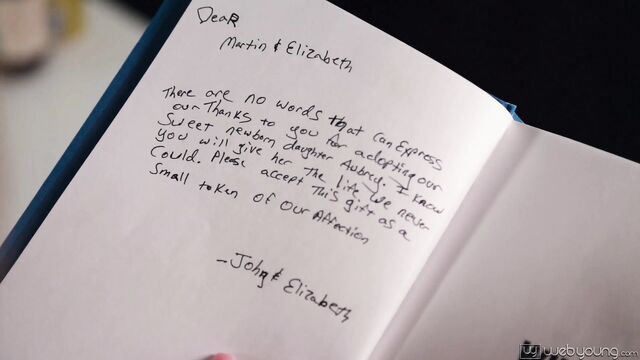 Dear
Martin & Elizabeth
There are no words that can express
our Thanks to you for adopting our
Sweet newborn daughter Aubrey. I know
you will give her The life we never
Could. Please accept This gift as a
Small token of our Affection
- John & Elizabeth
webyoung.com